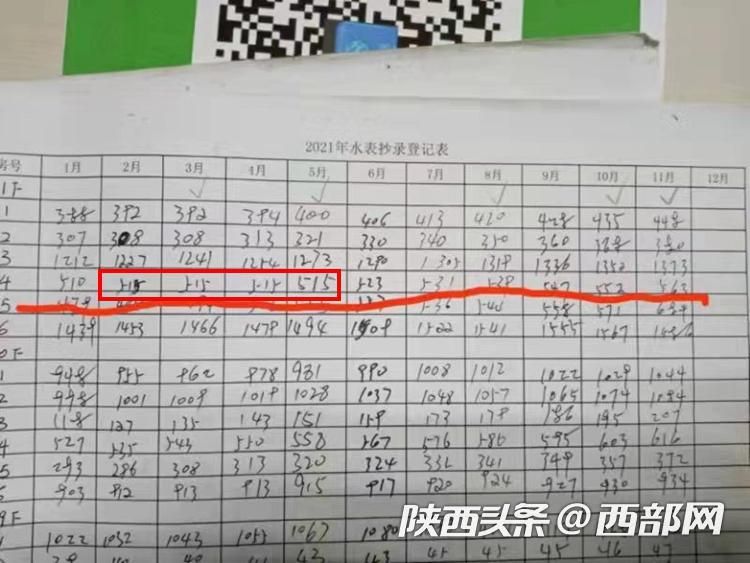 2021年水表抄录登记表
房号 1月 2月 3月 4月 5月 6月 7月 8月 9月 10月 11月 12月
1F
1 388 392 392 394 400 406 413 420 428 435 448
2 307 308 308 313 321 330 340 350 360
3 1212 1227 1241 1254 1273 1290 1305 1318 1336 1352 1373
4 510 515 515 515 515 523 531 538 547 552 563
5 536 558 571
6 1439 1453 1466 1479 1494 1509 1522 1541 1555 1567
0F
1 948 955 962 978 981 990 1008 1012 1022 1029 1044
2 998 1001 1009 1019 1028 1037 1048 1057 1065 1074 1094
3 118 127 135 143 151 159 173 178 186 195 207
4 527 535 543 550 558 567 576 586 595 603 616
5 293 286 308 313 320 324 332 341 349 357 372
903 912 913 913 915 917 920 924 927 930 934
9F
1022 1032 1043 1055 1067 1080
40 43 45 45 45 46 47
陕西头条@西部网